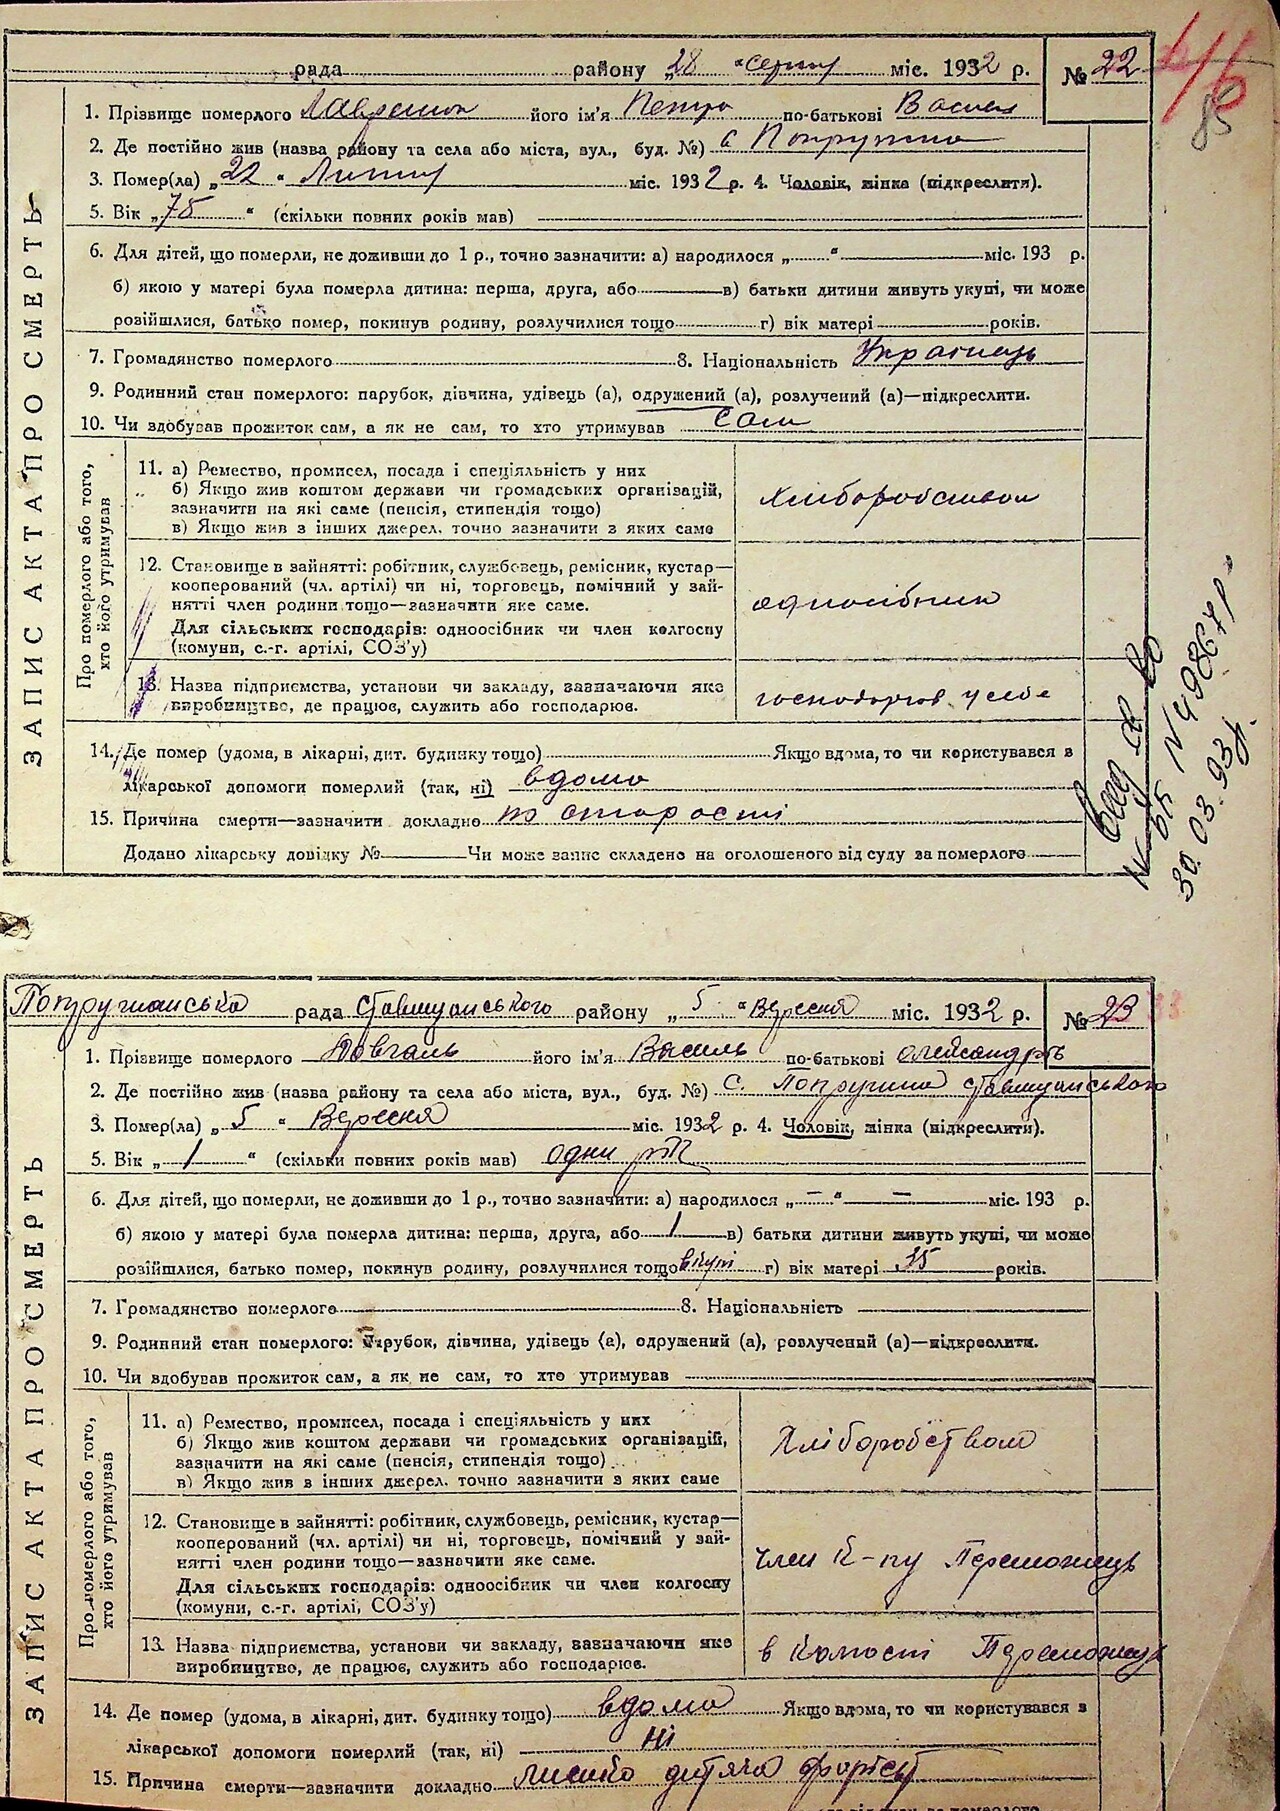 рада району „28 " серпня міс. 1932 р. № 22
85
ЗАПИС АКТА ПРО СМЕРТЬ
1. Прізвище померлого його ім'я Петро по-батькові Васил
2. Де постійно жив (назва району та села або міста, вул., буд. №) с Попружна
3. Помер(ла) „22 " міс. 1932 р. 4. Чоловік, жінка (підкреслити).
5. Вік „ " (скільки повних років мав)
6. Для дітей, що померли, не доживши до 1 р., точно зазначити: а) народилося „ " міс. 193 р.
б) якою у матері була померла дитина: перша, друга, або в) батьки дитини живуть укупі, чи може
розійшлися, батько помер, покинув родину, розлучилися тощо г) вік матері років.
7. Громадянство померлого 8. Національність Українець
9. Родинний стан померлого: парубок, дівчина, удівець (а), одружений (а), розлучений (а)—підкреслити.
10. Чи здобував прожиток сам, а як не сам, то хто утримував Сам
Про померлого або того,
хто його утримував
11. а) Ремество, промисел, посада і спеціяльність у них
б) Якщо жив коштом держави чи громадських організацій,
зазначити на які саме (пенсія, стипендія тощо)
в) Якщо жив з інших джерел. точно зазначити з яких саме
хліборобством
12. Становище в зайнятті: робітник, службовець, ремісник, кустар—
кооперований (чл. артілі) чи ні, торговець, помічний у зай-
нятті член родини тощо—зазначити яке саме.
Для сільських господарів: одноосібник чи член колгоспу
(комуни, с.-г. артілі, СОЗ'у)
одноосібник
13. Назва підприємства, установи чи закладу, зазначаючи яке
виробництво, де працює, служить або господарює.
господарював у себе
14. Де помер (удома, в лікарні, дит. будинку тощо) Якщо вдома, то чи користувався в
лікарської допомоги померлий (так, ні) вдома
15. Причина смерти—зазначити докладно по старості
Додано лікарську довідку № Чи може запис складено на оголошеного від суду за померлого
30.03.93р.
Попружнанська рада Ставищанського району „5 " Вересня міс. 1932 р. № 23
ЗАПИС АКТА ПРО СМЕРТЬ
1. Прізвище померлого Довгань його ім'я Василь по-батькові
2. Де постійно жив (назва району та села або міста, вул., буд. №) с. Попружна Ставищанського
3. Помер(ла) „5 " Вересня міс. 1932 р. 4. Чоловік, жінка (підкреслити).
5. Вік „1 " (скільки повних років мав) один рік
6. Для дітей, що померли, не доживши до 1 р., точно зазначити: а) народилося „— " — міс. 193 р.
б) якою у матері була померла дитина: перша, друга, або 1 в) батьки дитини живуть укупі, чи може
розійшлися, батько помер, покинув родину, розлучилися тощо вкупі г) вік матері 35 років.
7. Громадянство померлого 8. Національність
9. Родинний стан померлого: парубок, дівчина, удівець (а), одружений (а), розлучений (а)—підкреслити.
10. Чи здобував прожиток сам, а як не сам, то хто утримував
Про померлого або того,
хто його утримував
11. а) Ремество, промисел, посада і спеціяльність у них
б) Якщо жив коштом держави чи громадських організацій,
зазначити на які саме (пенсія, стипендія тощо)
в) Якщо жив з інших джерел. точно зазначити з яких саме
Хліборобством
12. Становище в зайнятті: робітник, службовець, ремісник, кустар—
кооперований (чл. артілі) чи ні, торговець, помічний у зай-
нятті член родини тощо—зазначити яке саме.
Для сільських господарів: одноосібник чи член колгоспу
(комуни, с.-г. артілі, СОЗ'у)
член к-пу Переможець
13. Назва підприємства, установи чи закладу, зазначаючи яке
виробництво, де працює, служить або господарює.
в Колгоспі Переможець
14. Де помер (удома, в лікарні, дит. будинку тощо) вдома Якщо вдома, то чи користувався в
лікарської допомоги померлий (так, ні) ні
15. Причина смерти—зазначити докладно дитяча